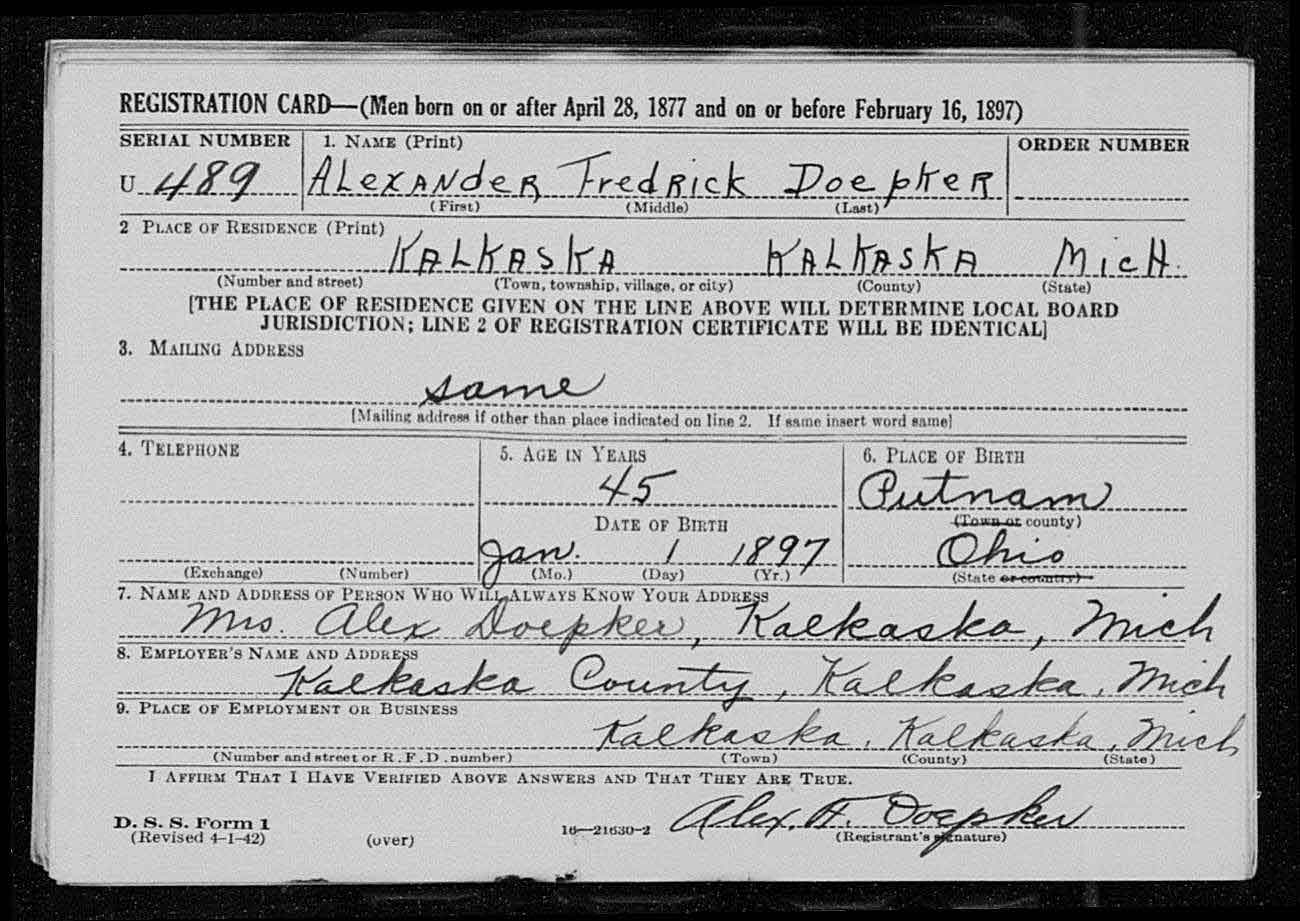 REGISTRATION CARD—(Men born on or after April 28, 1877 and on or before February 16, 1897)
SERIAL NUMBER 1. NAME (Print) ORDER NUMBER
U 489 ALexANdeR FredRick DoepkeR
(First) (Middle) (Last)
2 PLACE OF RESIDENCE (Print)
KALKASKA KALKASKA MicH.
(Number and street) (Town, township, village, or city) (County) (State)
[THE PLACE OF RESIDENCE GIVEN ON THE LINE ABOVE WILL DETERMINE LOCAL BOARD
JURISDICTION; LINE 2 OF REGISTRATION CERTIFICATE WILL BE IDENTICAL]
3. MAILING ADDRESS
same
[Mailing address if other than place indicated on line 2. If same insert word same]
4. TELEPHONE 5. AGE IN YEARS 6. PLACE OF BIRTH
45 Putnam
DATE OF BIRTH (Town or county)
Jan. 1 1897 Ohio
(Exchange) (Number) (Mo.) (Day) (Yr.) (State or country)
7. NAME AND ADDRESS OF PERSON WHO WILL ALWAYS KNOW YOUR ADDRESS
Mrs. Alex Doepker, Kalkaska, Mich
8. EMPLOYER'S NAME AND ADDRESS
Kalkaska County, Kalkaska, Mich
9. PLACE OF EMPLOYMENT OR BUSINESS
Kalkaska, Kalkaska, Mich
(Number and street or R. F. D. number) (Town) (County) (State)
I AFFIRM THAT I HAVE VERIFIED ABOVE ANSWERS AND THAT THEY ARE TRUE.
Alex. F. Doepker
D. S. S. Form 1
(Revised 4-1-42) (over) 16—21630-2 (Registrant's signature)